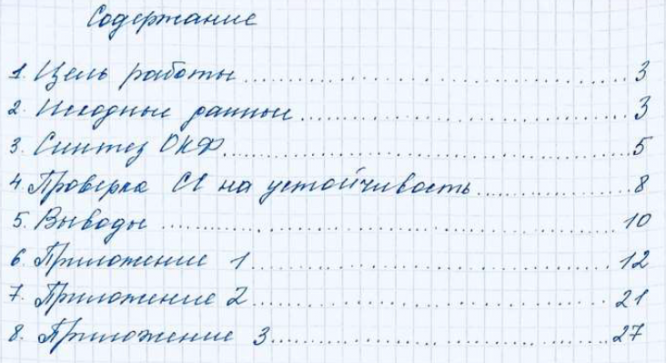 Содержание
1. Цель работы ........ 3
2. Исходные данные ........ 3
3. Синтез ОКФ ........ 5
4 Проверка СС на устойчивость ........ 8
5. Выводы ........ 10
6. Приложение 1 ........ 12
7. Приложение 2 ........ 21
8. Приложение 3 ........ 27